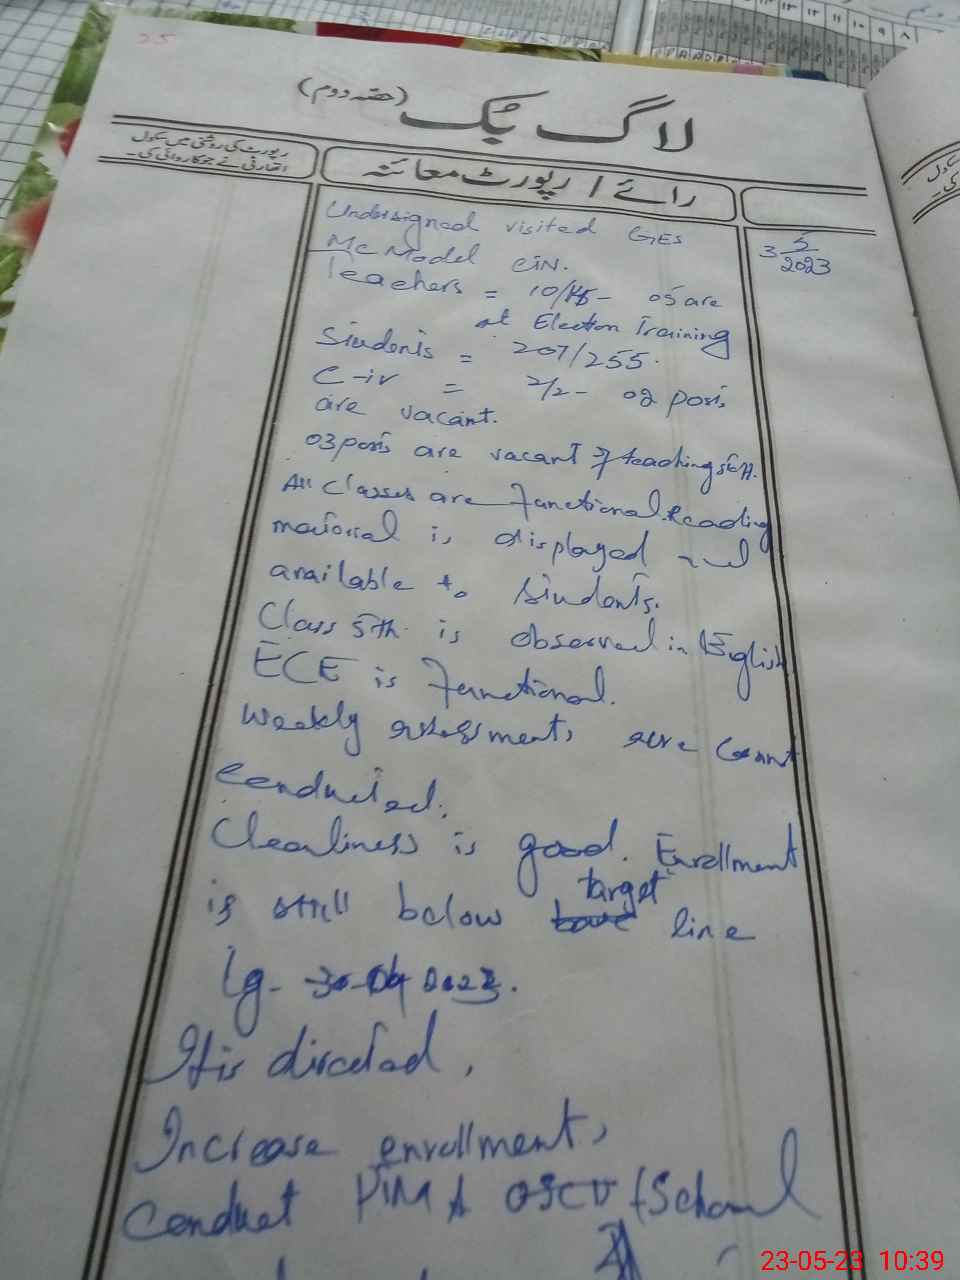 25
لاگ بُک (حصّہ دوم)
رپورٹ کی روشنی میں سکول
اتھارٹی نے جو کاروائی کی۔
رائے / رپورٹ معائنہ
Undersigned visited GES
Mc Model
3 5/2023
Teachers = 10/15 - 05 are
at Election Training
Students = 207/255.
C-iv = 2/2 - 02 posts
are vacant.
03 posts are vacant of teaching staff.
All Classes are functional. Reading
material is displayed and
available to students.
Class 5th is observed in English
ECE is Functional.
Weekly assessments are
conducted.
Cleanliness is good. Enrollment
is still below target line
It is directed,
Increase enrollment,
Conduct School
23-05-23 10:39